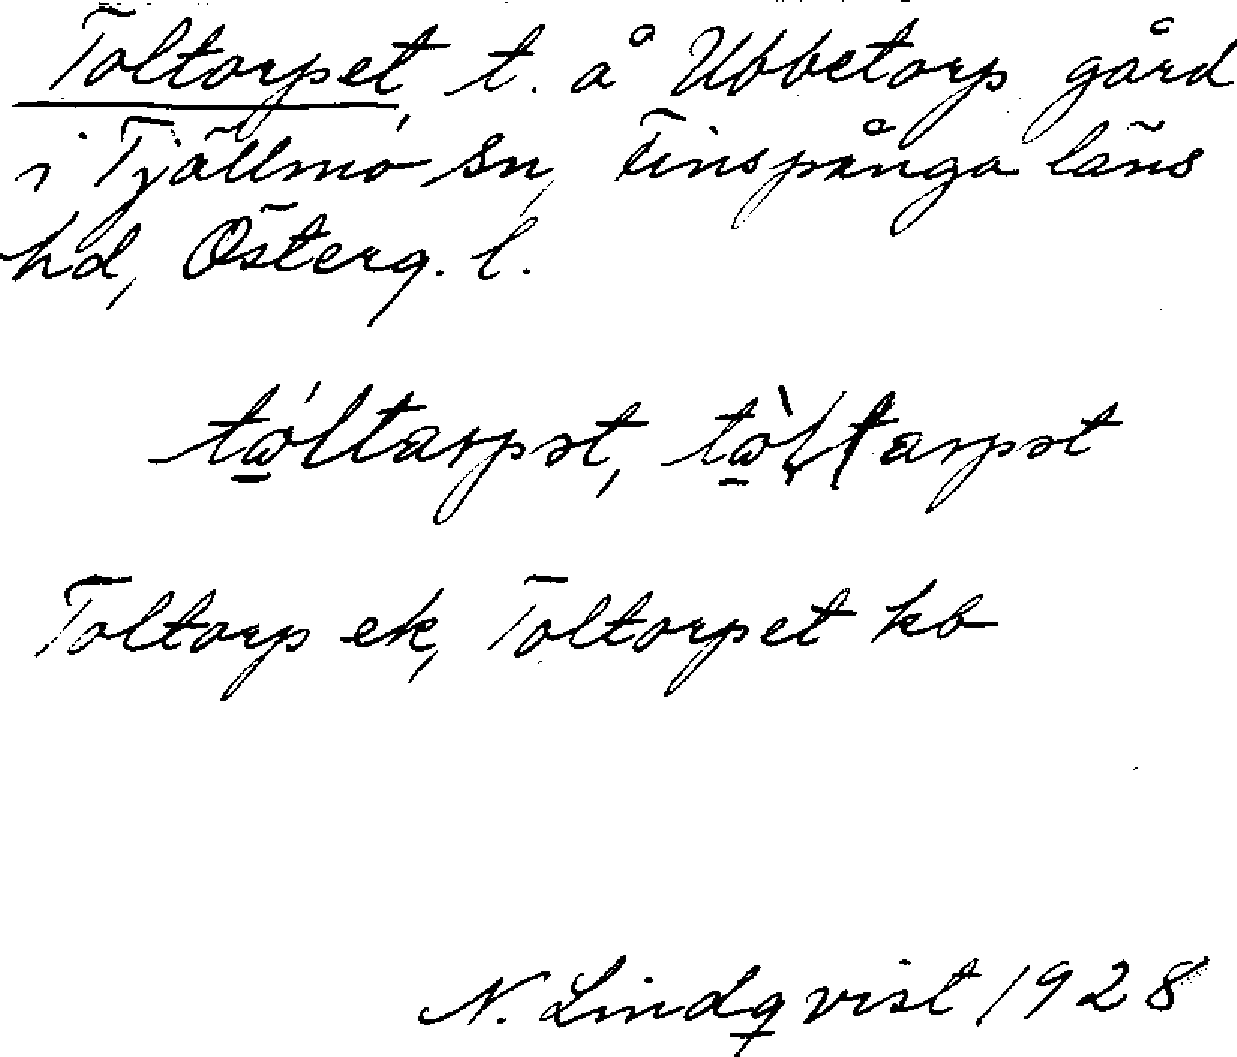 Toltorpet, t. å Ubbetorp gård
i Tjällmo sn, Finspånga läns
hd, Österg. l.
Toltorp ek, Toltorpet kb
N. Lindqvist 1928